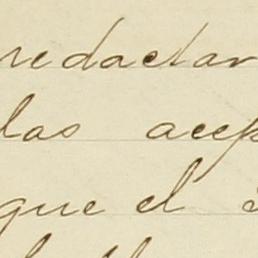 redactar
las acep
que el